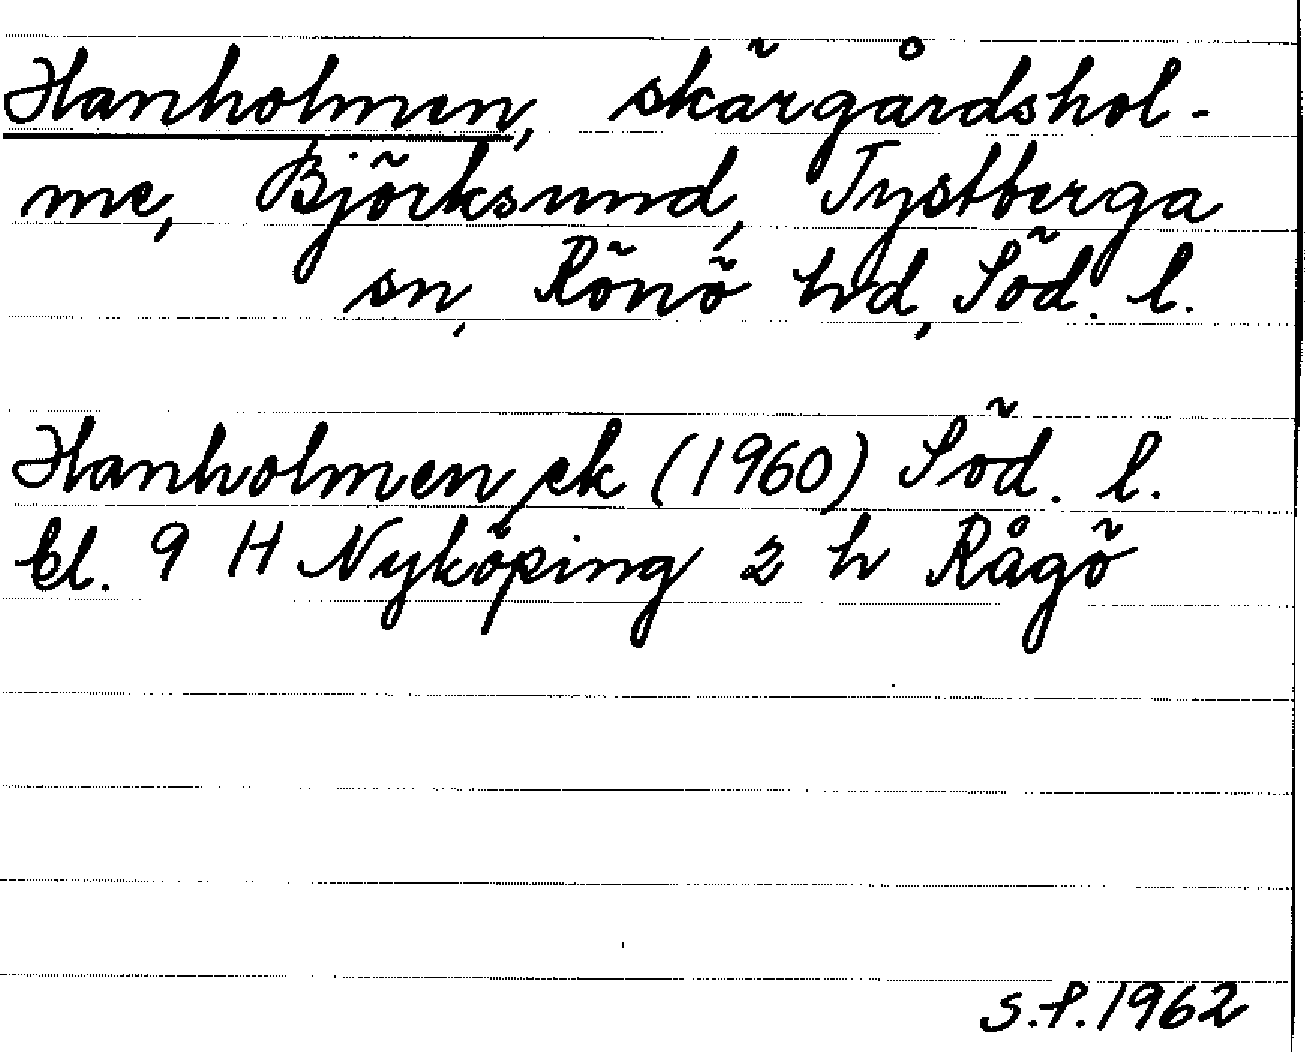 Hanholmen, skärgårdshol-
me, Björksund, Tystberga
sn, Rönö hd, Söd. l.
Hanholmen ek (1960) Söd. l.
bl. 9 H Nyköping 2 h Rågö
S.F. 1962